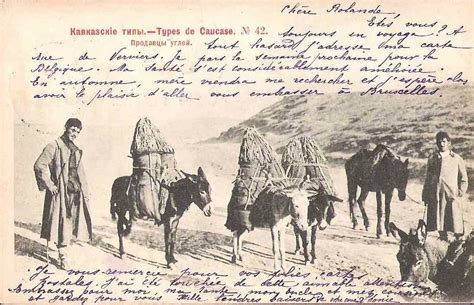 Chère Rolande,
Кавказскіе типы.—Types de Caucase. № 42.
Продавцы углей.
Êtes vous?
toujours en voyage? A
tout hasard j'adresse ma carte
Rue de Verviers. Je pars la semaine prochaine pour la
Belgique. Ma Santé s'est considérablement améliorée.
En automne mère viendra me rechercher et j'espère
avoir le plaisir d'aller vous embrasser à Bruxelles
Je vous remercie pour vos jolies cartes
Postales. J'ai été touchée de cette aimable attention
Embrassez pour moi, ma tante, mon oncle, mes cousins
et gardez pour vous mille tendres baisers de